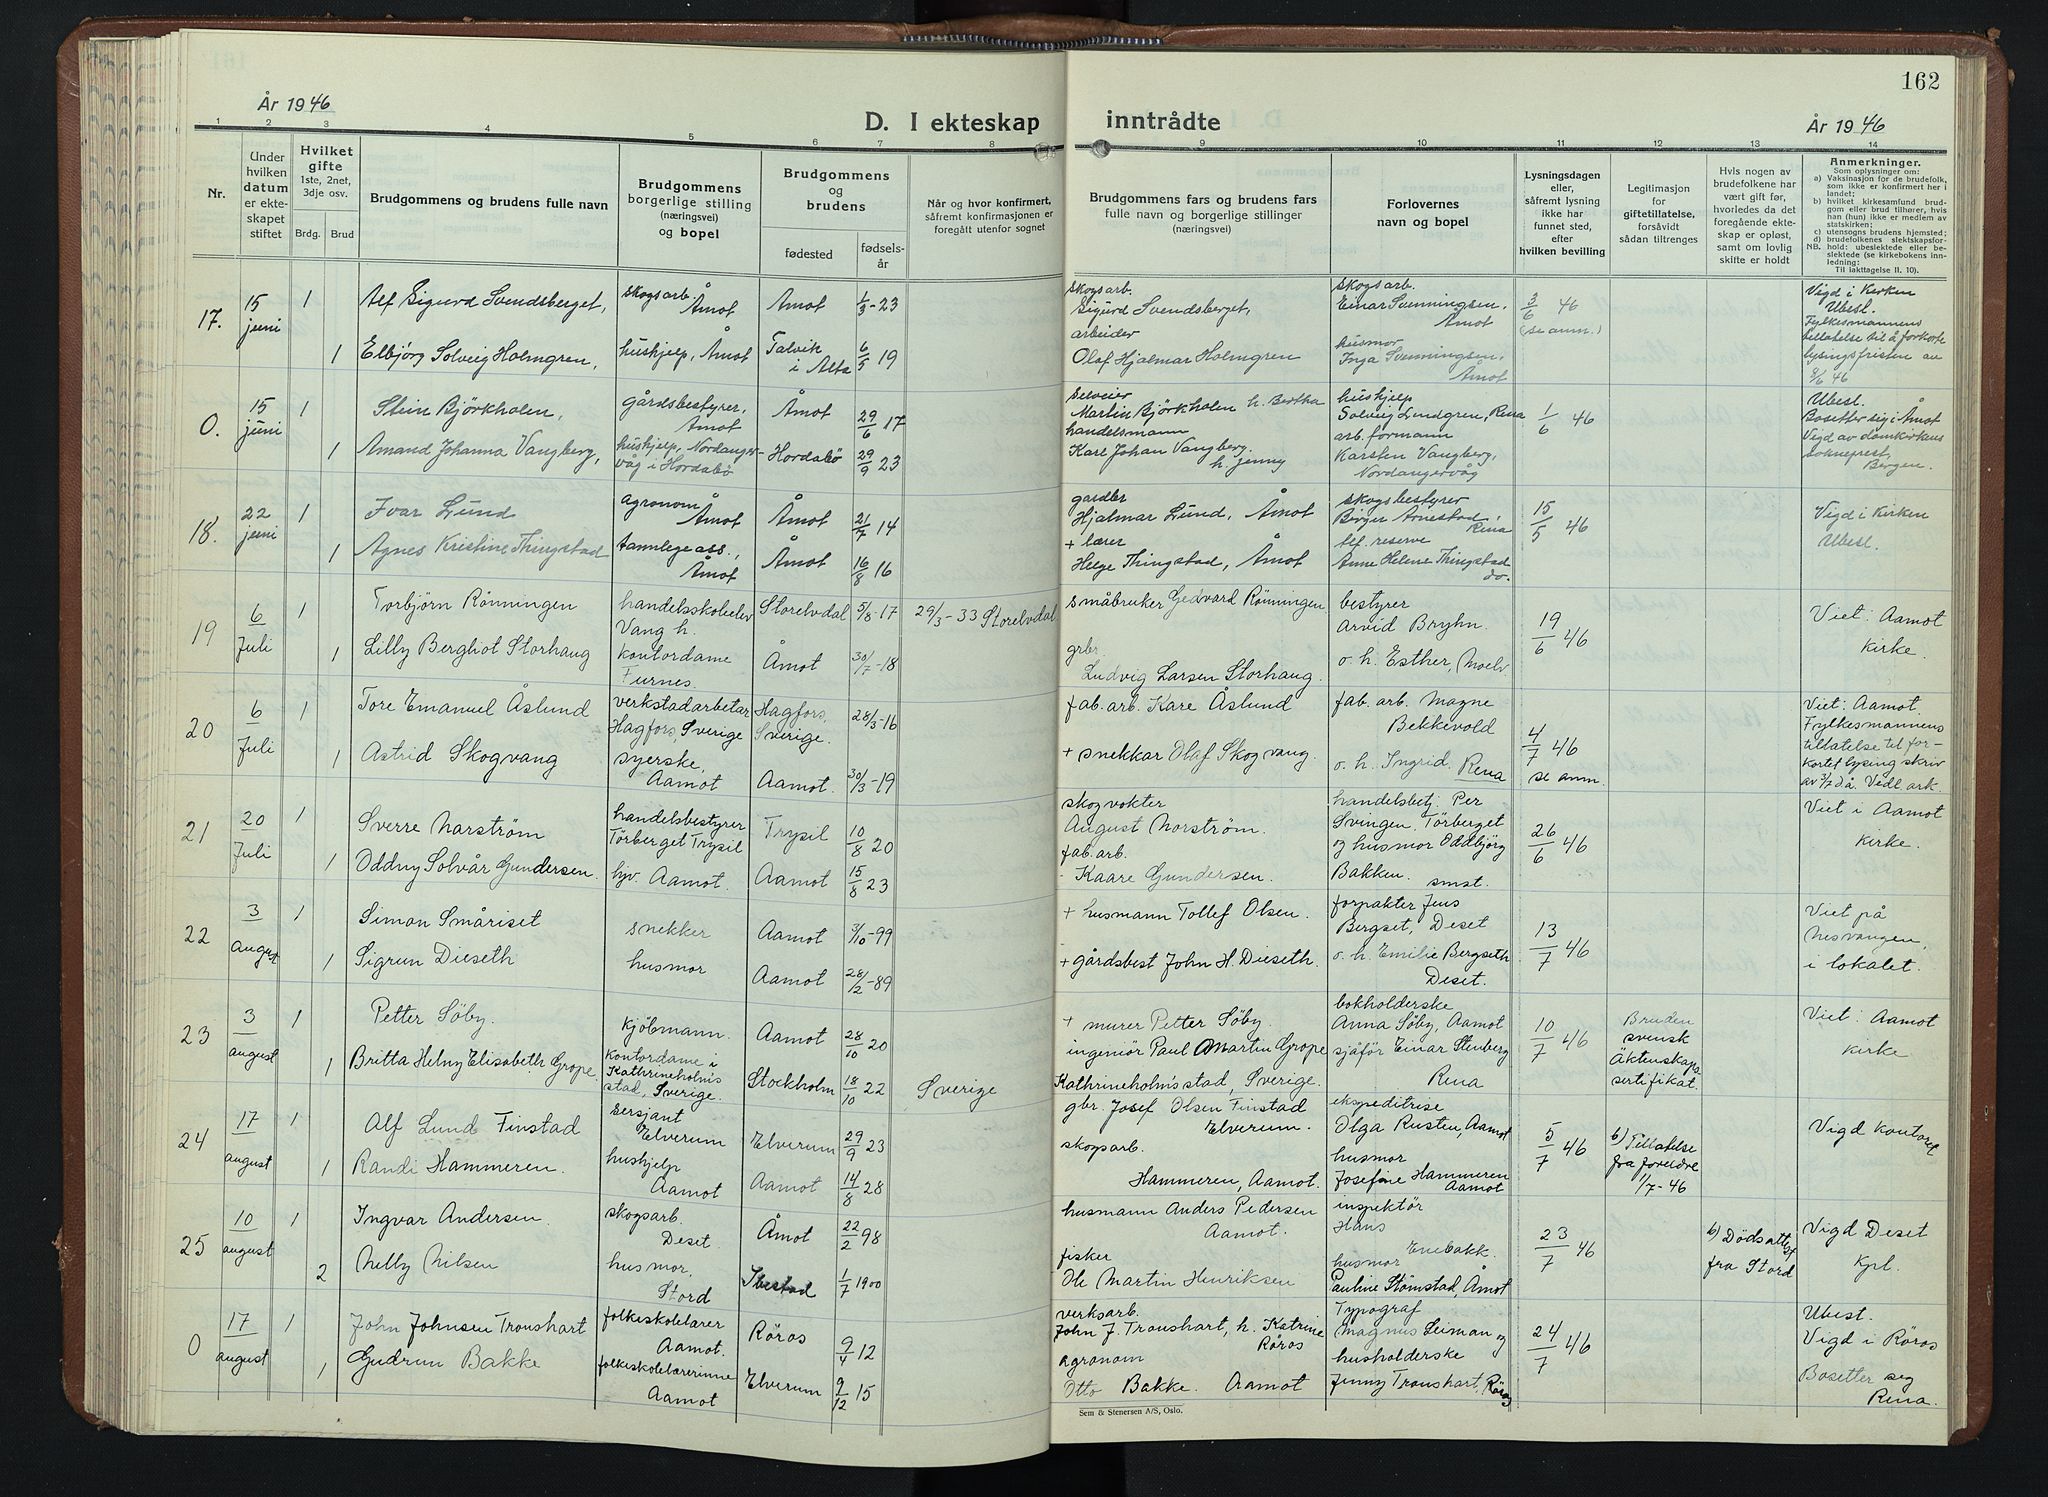 162
År 1946
D. I ekteskap inntrådte
År 1946
1 2 3 4 5 6 7 8 9 10 11 12 13 14
Nr.
Under hvilken datum er ekteskapet stiftet
Hvilket gifte 1ste, 2net, 3dje osv.
Brdg. Brud
Brudgommens og brudens fulle navn
Brudgommens borgerlige stilling (næringsvei) og bopel
Brudgommens og brudens
fødested
fødselsår
Når og hvor konfirmert, såfremt konfirmasjonen er foregått utenfor sognet
Brudgommens fars og brudens fars fulle navn og borgerlige stillinger (næringsvei)
Forlovernes navn og bopel
Lysningsdagen eller, såfremt lysning ikke har funnet sted, efter hvilken bevilling
Legitimasjon for giftetillatelse, forsåvidt sådan tiltrenges
Hvis nogen av brudefolkene har vært gift før, hvorledes da det foregående ekteskap er opløst, samt om lovlig skifte er holdt
Anmerkninger.
Som oplysning om:
a) Vaksinasjon for de brudefolk, som ikke er konfirmert her i landet;
b) hvilket kirkesamfund brudgom eller brud tilhører, hvis han (hun) ikke er medlem av statskirken;
c) utensogns brudens hjemsted;
d) brudefolkenes slektskapsforhold: ubeslektede eller beslektede (se kirkebokens innledning:
NB. Til iakttagelse II. 10).
17. 15 juni 1 Alf Sigurd Svendsberget, skogsarb. Åmot Åmot 1/3-23 skogsarb. Sigurd Svendsberget, skogsarb. Einar Svenningsen, Åmot 3/6 46 (se anm.) Vigd i Kirken Ubesl.
1 Elbjörg Solveig Holmgren, hushjelp, Åmot Talvik i Alta 6/5 19 arbeider Olaf Hjalmar Holmgren husmor Inga Svenningsen, Åmot Fylkesmannens tillatelse til å forkorte lysingsfristen av 9/6 46
0. 15 juni 1 Stein Björkholen, gårdsbestyrer, Åmot Åmot 29/6 17 selveier Martin Björkholen h. Bertha hushjelp Solveig Lundgren, Rena 1/6 46 Ubesl. Bosetter sig i Åmot
1 Amand Johanna Vangberg, hushjelp, Nordangervåg i Hordabö Hordabö 29/9 23 handelsmann Karl Johan Vangberg. h. Jenny arb. formann Karsten Vangberg, Nordangervåg Vigd av domkirkens sokneprest, Bergen.
18. 22 juni 1 Ivar Lund agronom Åmot Åmot 21/7 14 gardbr Hjalmar Lund, Åmot skogsbestyrer Birger Arnestad, Rena 15/5 46 Vigd i Kirken Ubesl.
1 Agnes Kristine Thingstad tannlege ass., Åmot Åmot 16/8 16 + lærer Helge Thingstad, Åmot tlf. reserve Anne Helene Thingstad do.
19 6 Juli 1 Torbjörn Rönningen handelsskoleelev Vang h. Storelvdal 5/8-17 29/3-33 Storelvdal småbruker Gedvard Rönningen bestyrer Arvid Bryhn. 19/6 46 Viet: Aamot kirke.
1 Lilly Bergliot Storhaug kontordame Furnes. Åmot 30/7-18 grbr. Ludvig Larsen Storhaug. o. h. Esther, Moelv
20 6 Juli 1 Tore Emanuel Åslund verkstadarbetar Hagfors, Sverige Hagfors, Sverige. 28/3-16 fab. arb. Kare Åslund fab. arb. Magne Bekkevold 4/7 46 se anm. Viet: Aamot
1 Astrid Skogvang syerske, Aamot Aamot. 30/3-19 + snekkar Olaf Skogvang. o. h. Ingrid. Rena Fylkesmannens tillatelse til forkortet lysing skriv av 3/7 d.å. Vedl. ark.
21 20 Juli 1 Sverre Norström handelsbestyrer Törberget Trysil Trysil 10/8 20 skogvokter August Norström. handelsbetj. Per Svingen. Törberget 26/6 46 Viet i Aamot kirke.
1 Oddny Solvår Gundersen. hjv. Aamot. Aamot 15/8 23 fab. arb. Kaare Gundersen. og husmor Oddbjörg Bakken. smst.
22 3 august 1 Simon Småriset snekker Aamot 3/10-99 + husmann Tollef Olsen. forpakter Jens Bergset, Deset 13/7 46 Viet på husvangen, i lokalet.
1 Sigrun Dieseth husmor Aamot 28/2-89 + gårdsbest John H. Dieseth. o. h. Emilie Bergseth Deset.
23 3 august 1 Petter Söby. kjöbmann. Aamot 28/10 20 + murer Petter Söby. bokholderske Anna Söby, Aamot 10/7 46 Bruden svensk Äktenskaps sertifikat. Viet: Aamot kirke
1 Britta Helny Elisabeth Grope. kontordame i Kathrineholms stad, Sverige. Stockholm 18/10 22 Sverige ingeniör Paul Martin Grope Kathrineholms stad, Sverige. sjåför Einar Stenberg Rena
24 17 august 1 Alf Lund Finstad sersjant Elverum Elverum 29/9 23 gbr. Josef Olsen Finstad Elverum. ekspeditrise Olga Rusten, Aamot 5/7 46 b) Tillatelse fra foreldre 1/7-46 Vigd kontoret
1 Randi Hammeren. hushjelp Aamot Aamot 14/8 28 skogsarb. Hammeren, Aamot. husmor Josefine Hammeren Aamot
25 10 august 1 Ingvar Andersen. skogsarb. Deset. Åmot 22/2 98 husmann Anders Pedersen Aamot. inspektör Hans Enebakk. 23/7 46 b) Dödsattest fra Stord Vigd Deset Kpl.
2 Nelly Nilsen husmor, Stord Ibestad 1/7 1900 fisker Ole Martin Henriksen husmor Pauline Stömstad, Åmot
0 17 august 1 John Johnsen Tronshart folkeskolelærer Aamot. Röros 9/4 12 verksarb. John J. Tronshart, h. Katrine Röros Typograf Magnus Leiman og 24/7 46 Ubest. Vigd i Röros
1 Gudrun Bakke folkeskolelærerinne Aamot Elverum 9/12 15 agronom Otto Bakke. Aamot husholderske Jenny Tronshart, Röros Bosetter seg Rena.
Sem & Stenersen A/S, Oslo.